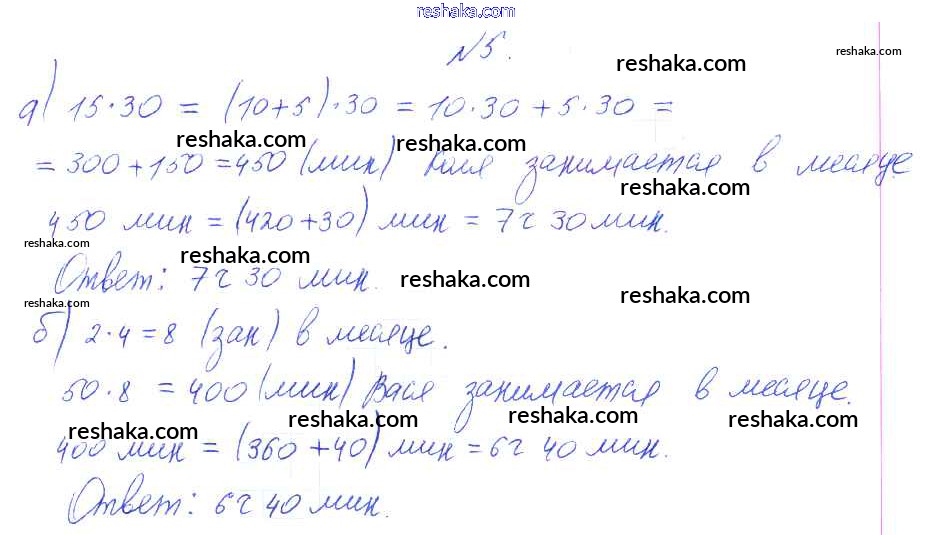 reshaka.com
№5.
reshaka.com
reshaka.com
а) 15·30 = (10+5)·30 = 10·30+5·30 =
reshaka.com
reshaka.com
= 300+150 =450 (мин) Коля занимается в месяце
reshaka.com
450 мин = (420+30) мин = 7ч 30мин.
reshaka.com
reshaka.com
Ответ: 7ч 30 мин.
reshaka.com
reshaka.com
reshaka.com
б) 2·4=8 (зан) в месяце.
50·8 = 400 (мин) Вася занимается в месяце.
reshaka.com
reshaka.com
reshaka.com
reshaka.com
400 мин = (360+40) мин =6ч 40 мин.
Ответ: 6ч 40 мин.